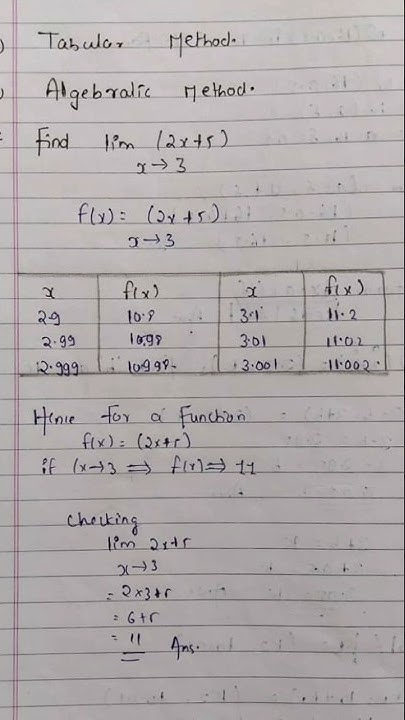 Tabular Method.
Algebralic Method.
Find lim (2x+5)
x→3
f(x) = (2x+5)
x→3
x f(x) x f(x)
2.9 10.8 3.1 11.2
2.99 10.98 3.01 11.02
2.999 10.998 3.001 11.002
Hence for a function
f(x) = (2x+5)
if (x→3 ⟹ f(x) ⟹ 11
Checking
lim 2x+5
x→3
= 2×3+5
= 6+5
= 11 Ans.